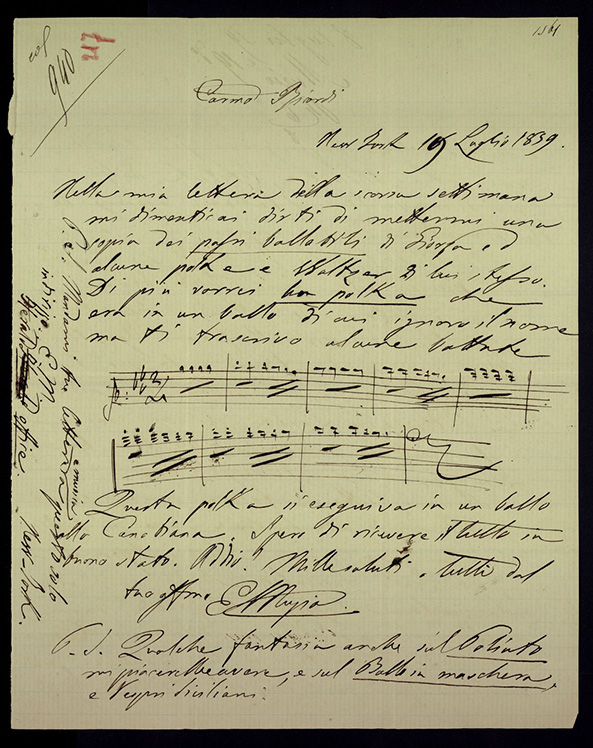 1561
Carmo Ricordi
New York 19 Luglio 1859.
Nella mia lettera della scorsa settimana
mi dimenticai dirti di mettermi una
copia dei passi ballabili di Giorza ed
alcune polke e Waltzer di lui stesso.
Di più vorrei una polka che
era in un ballo di cui ignoro il nome
ma ti trascrivo alcune battute
Questa polka si eseguiva in un ballo
alla Canobiana. Spero di ricevere il tutto in
buono stato. Addio. Mille saluti a tutti dal
tuo affmo EMuzio
P. S. Qualche fantasia anche sul Poliuto
mi piacerebbe avere, e sul Ballo in maschera
e Vespri Siciliani.
P. S. Mandami tua lettera e musica
indirizzo E. M.
Herald Office.
New-York.